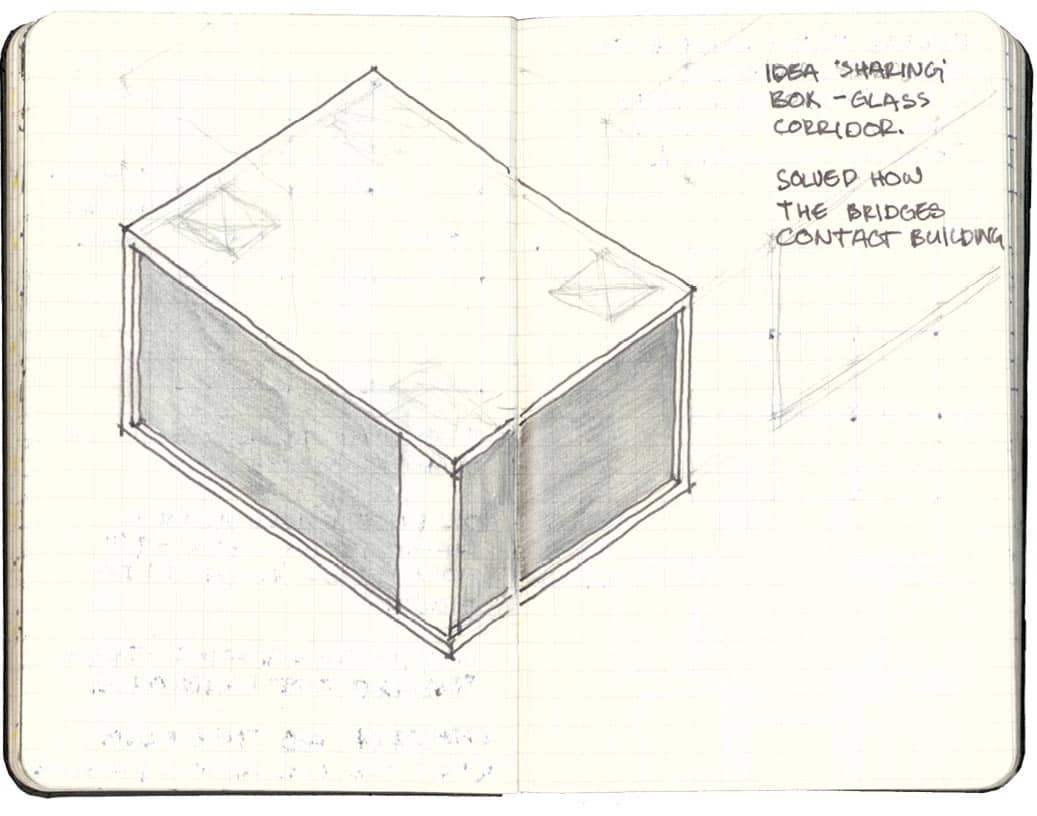 IDEA 'SHARING'
BOX - GLASS
CORRIDOR.
SOLVED HOW
THE BRIDGES
CONTACT BUILDING